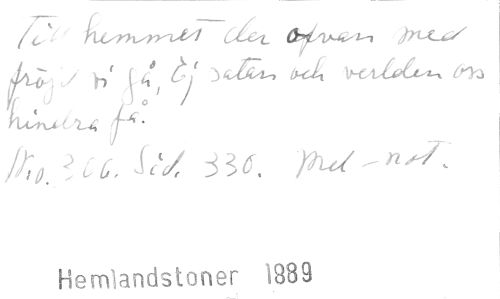 Till hemmet der ofvan med
fröjd vi gå, Ej satan och verlden oss
hindra få.
No. 366. Sid. 330. Med not.
Hemlandstoner 1889